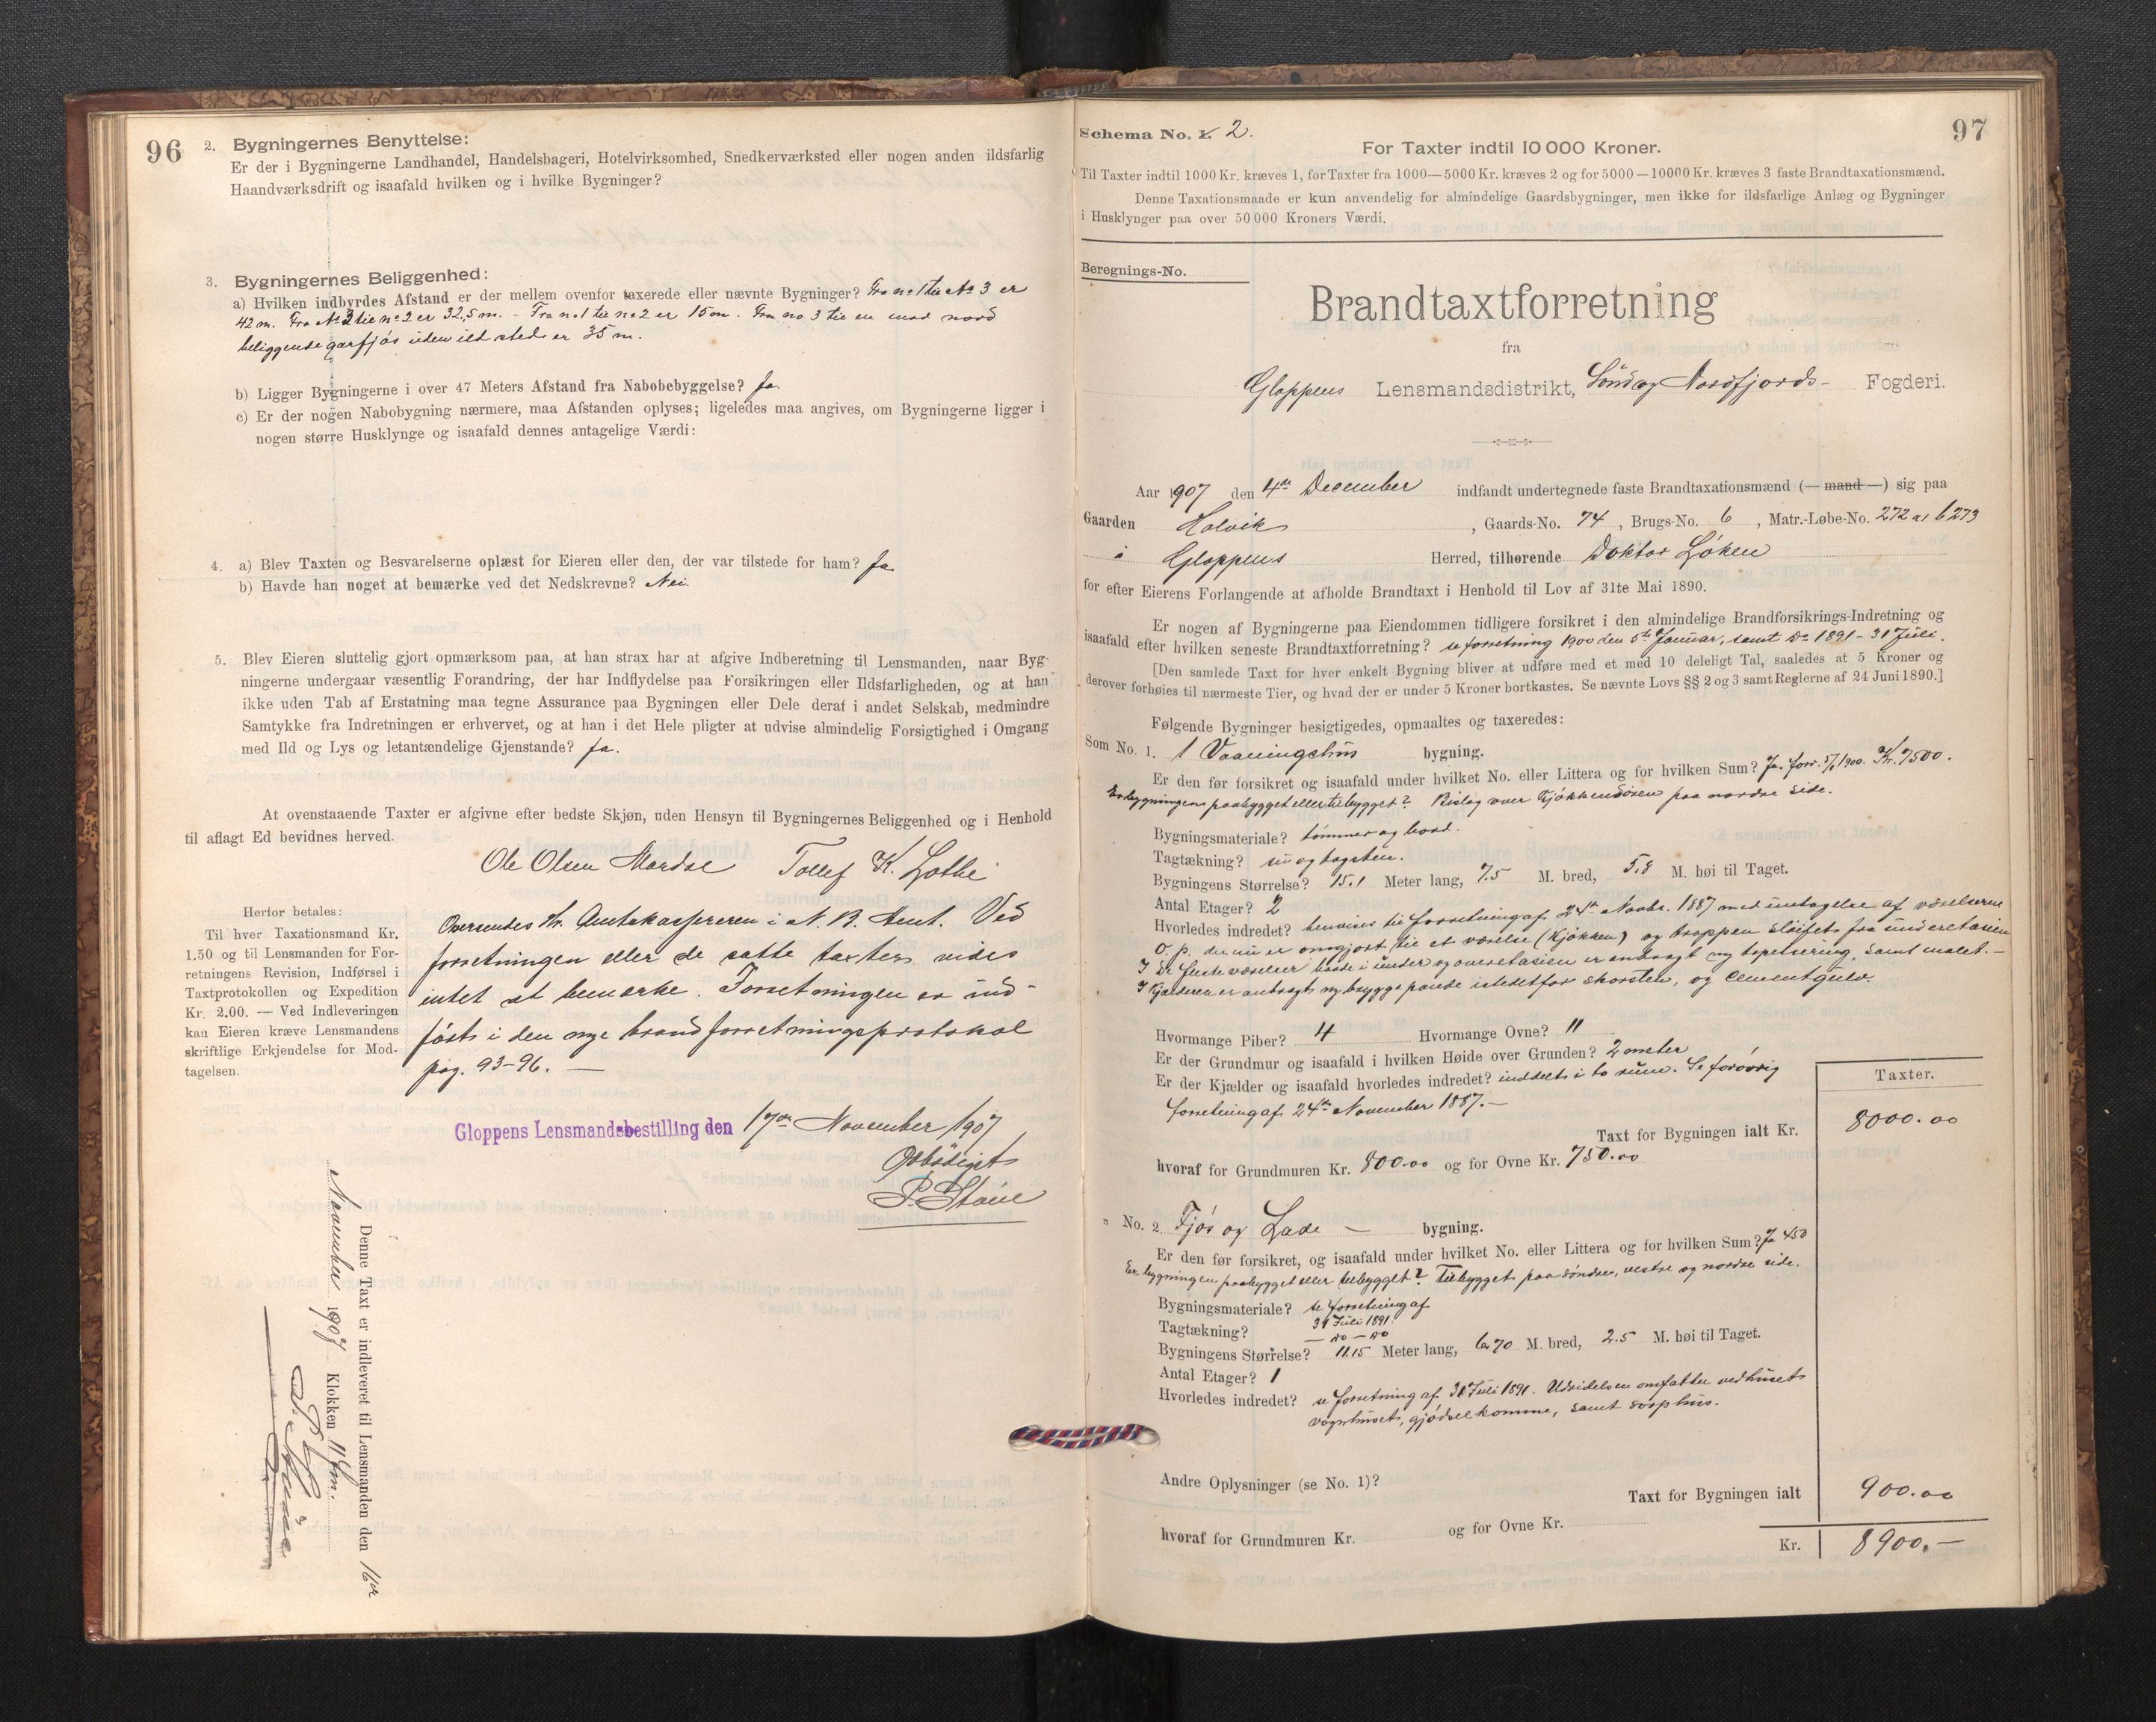 96
2. Bygningernes Benyttelse:
Er der i Bygningerne Landhandel, Handelsbageri, Hotelvirksomhed, Snedkerværksted eller nogen anden ildsfarlig
Haandværksdrift og isaafald hvilken og i hvilke Bygninger?
3. Bygningernes Beliggenhed:
a) Hvilken indbyrdes Afstand er der mellem ovenfor taxerede eller nævnte Bygninger? Fra no 1 til No 3 er
42 m. Fra No 3 til no 2 er 32,5 m. - Fra no 1 til no 2 er 15 m. Fra no 3 til en mod nord
beliggende garfjøs uden ild sted er 35 m.
b) Ligger Bygningerne i over 47 Meters Afstand fra Nabobebyggelse? Ja.
c) Er der nogen Nabobygning nærmere, maa Afstanden oplyses; ligeledes maa angives, om Bygningerne ligger i
nogen større Husklynge og isaafald dennes antagelige Værdi:
4. a) Blev Taxten og Besvarelserne oplæst for Eieren eller den, der var tilstede for ham? Ja
b) Havde han noget at bemærke ved det Nedskrevne? Nei.
5. Blev Eieren sluttelig gjort opmærksom paa, at han strax har at afgive Indberetning til Lensmanden, naar Byg-
ningerne undergaar væsentlig Forandring, der har Indflydelse paa Forsikringen eller Ildsfarligheden, og at han
ikke uden Tab af Erstatning maa tegne Assurance paa Bygningen eller Dele deraf i andet Selskab, medmindre
Samtykke fra Indretningen er erhvervet, og at han i det Hele pligter at udvise almindelig Forsigtighed i Omgang
med Ild og Lys og letantændelige Gjenstande? Ja.
At ovenstaaende Taxter er afgivne efter bedste Skjøn, uden Hensyn til Bygningernes Beliggenhed og i Henhold
til aflagt Ed bevidnes herved.
Ole Olsen Mardal Tollef K. Lothe
Herfor betales:
Til hver Taxationsmand Kr.
1.50 og til Lensmanden for For-
retningens Revision, Indførsel i
Taxtprotokollen og Expedition
Kr. 2.00. — Ved Indleveringen
kan Eieren kræve Lensmandens
skriftlige Erkjendelse for Mod-
tagelsen.
Oversendes Hr. Amtskassereren i N. B. Amt. Ved
forretningen eller de satte taxter vides
intet at bemærke. Forretningen er ind-
ført i den nye brandforretningsprotokol
pag. 93-96. —
Gloppens Lensmandsbestilling den 17de November 1907
Ærbødigst
Denne Taxt er indleveret til Lensmanden den 16de
November 1907 Klokken 11 fm.
97
Schema No. 1. 2.
For Taxter indtil 10 000 Kroner.
Til Taxter indtil 1000 Kr. kræves 1, for Taxter fra 1000—5000 Kr. kræves 2 og for 5000—10000 Kr. kræves 3 faste Brandtaxationsmænd.
Denne Taxationsmaade er kun anvendelig for almindelige Gaardsbygninger, men ikke for ildsfarlige Anlæg og Bygninger
i Husklynger paa over 50 000 Kroners Værdi.
Beregnings-No.
Brandtaxtforretning
fra
Gloppens Lensmandsdistrikt, Sönd og Nordfjords- Fogderi.
Aar 1907 den 4de December indfandt undertegnede faste Brandtaxationsmænd (— mand —) sig paa
Gaarden Holvik, Gaards-No. 74, Brugs-No. 6, Matr.-Løbe-No. 272 a, b 273
i Gloppens Herred, tilhørende Doktor Løken
for efter Eierens Forlangende at afholde Brandtaxt i Henhold til Lov af 31te Mai 1890.
Er nogen af Bygningerne paa Eiendommen tidligere forsikret i den almindelige Brandforsikrings-Indretning og
isaafald efter hvilken seneste Brandtaxtforretning? se forretning 1900 den 5te Januar, samt Do 1891 - 31 Juli.
[Den samlede Taxt for hver enkelt Bygning bliver at udføre med et med 10 deleligt Tal, saaledes at 5 Kroner og
derover forhøies til nærmeste Tier, og hvad der er under 5 Kroner bortkastes. Se nævnte Lovs §§ 2 og 3 samt Reglerne af 24 Juni 1890.]
Følgende Bygninger besigtigedes, opmaaltes og taxeredes:
Som No. 1. 1 Vaaningshus bygning.
Er den før forsikret og isaafald under hvilket No. eller Littera og for hvilken Sum? Ja. forr. 5/1 1900. Kr. 7500.
Er bygningen paabygget eller tilbygget? Bislag over Kjøkkendøren paa nordre side.
Bygningsmateriale? tømmer og bord.
Tagtækning? nu tagsten.
Bygningens Størrelse? 15.1 Meter lang, 7.5 M. bred, 5.8 M. høi til Taget.
Antal Etager? 2
Hvorledes indredet? henvises til forretning af 24de Novbr. 1887 med undtagelse af værelserne
O. p. der nu er omgjort til et værelse (Kjøkken) og trappen sløifet fra underetasien
I de fleste værelser baade i under og overetasien er anbragt ny tapetsering, samt malet. —
I Kjælderen er anbragt ny bryggepande istedetfor skorsten, og Cementgulv.
Hvormange Piber? 4 Hvormange Ovne? 11
Er der Grundmur og isaafald i hvilken Høide over Grunden? 2 meter
Er der Kjælder og isaafald hvorledes indredet? inddelt i to rum. Se forøvrig
forretning af 24de November 1887. —
Taxter.
Taxt for Bygningen ialt Kr. 8000.00
hvoraf for Grundmuren Kr. 800.00 og for Ovne Kr. 750.00
" No. 2 Fjøs og Lade — bygning.
Er den før forsikret, og isaafald under hvilket No. eller Littera og for hvilken Sum? Ja 450
Er bygningen paabygget eller tilbygget? Tilbygget paa søndre, vestre og nordre side.
Bygningsmateriale? se forretning af
31 Juli 1891.
Tagtækning? — do — do
Bygningens Størrelse? 11.15 Meter lang, 6.70 M. bred, 2.5 M. høi til Taget.
Antal Etager? 1
Hvorledes indredet? se forretning af 31 Juli 1891. Udvidelsen omfatter vedhuset
vognhuset, gjødselkomme, samt sophus.
Andre Oplysninger (se No. 1)?
Taxt for Bygningen ialt 900.00
hvoraf for Grundmuren Kr. og for Ovne Kr.
Kr. 8900.—